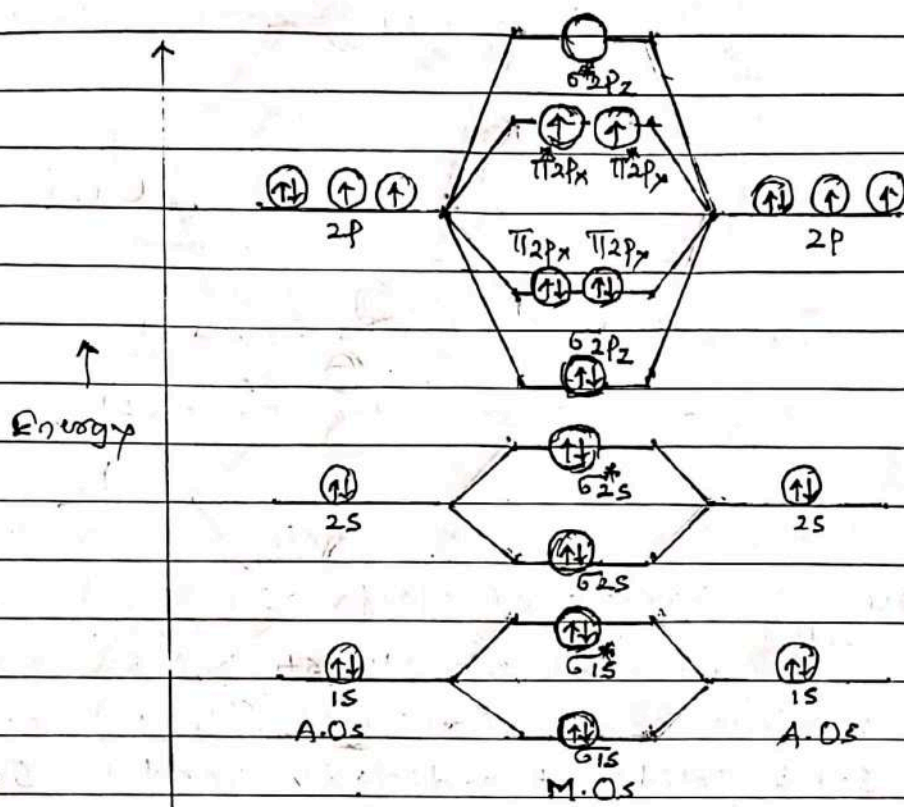 σ*2pz
↑ ↑
π*2px π*2py
↑↓ ↑ ↑
2p
↑↓ ↑ ↑
2p
π2px π2py
↑↓ ↑↓
σ2pz
↑↓
Energy
↑↓
σ*2s
↑↓
2s
↑↓
2s
↑↓
σ2s
↑↓
σ*1s
↑↓
1s
↑↓
1s
A.Os
A.Os
↑↓
σ1s
M.Os